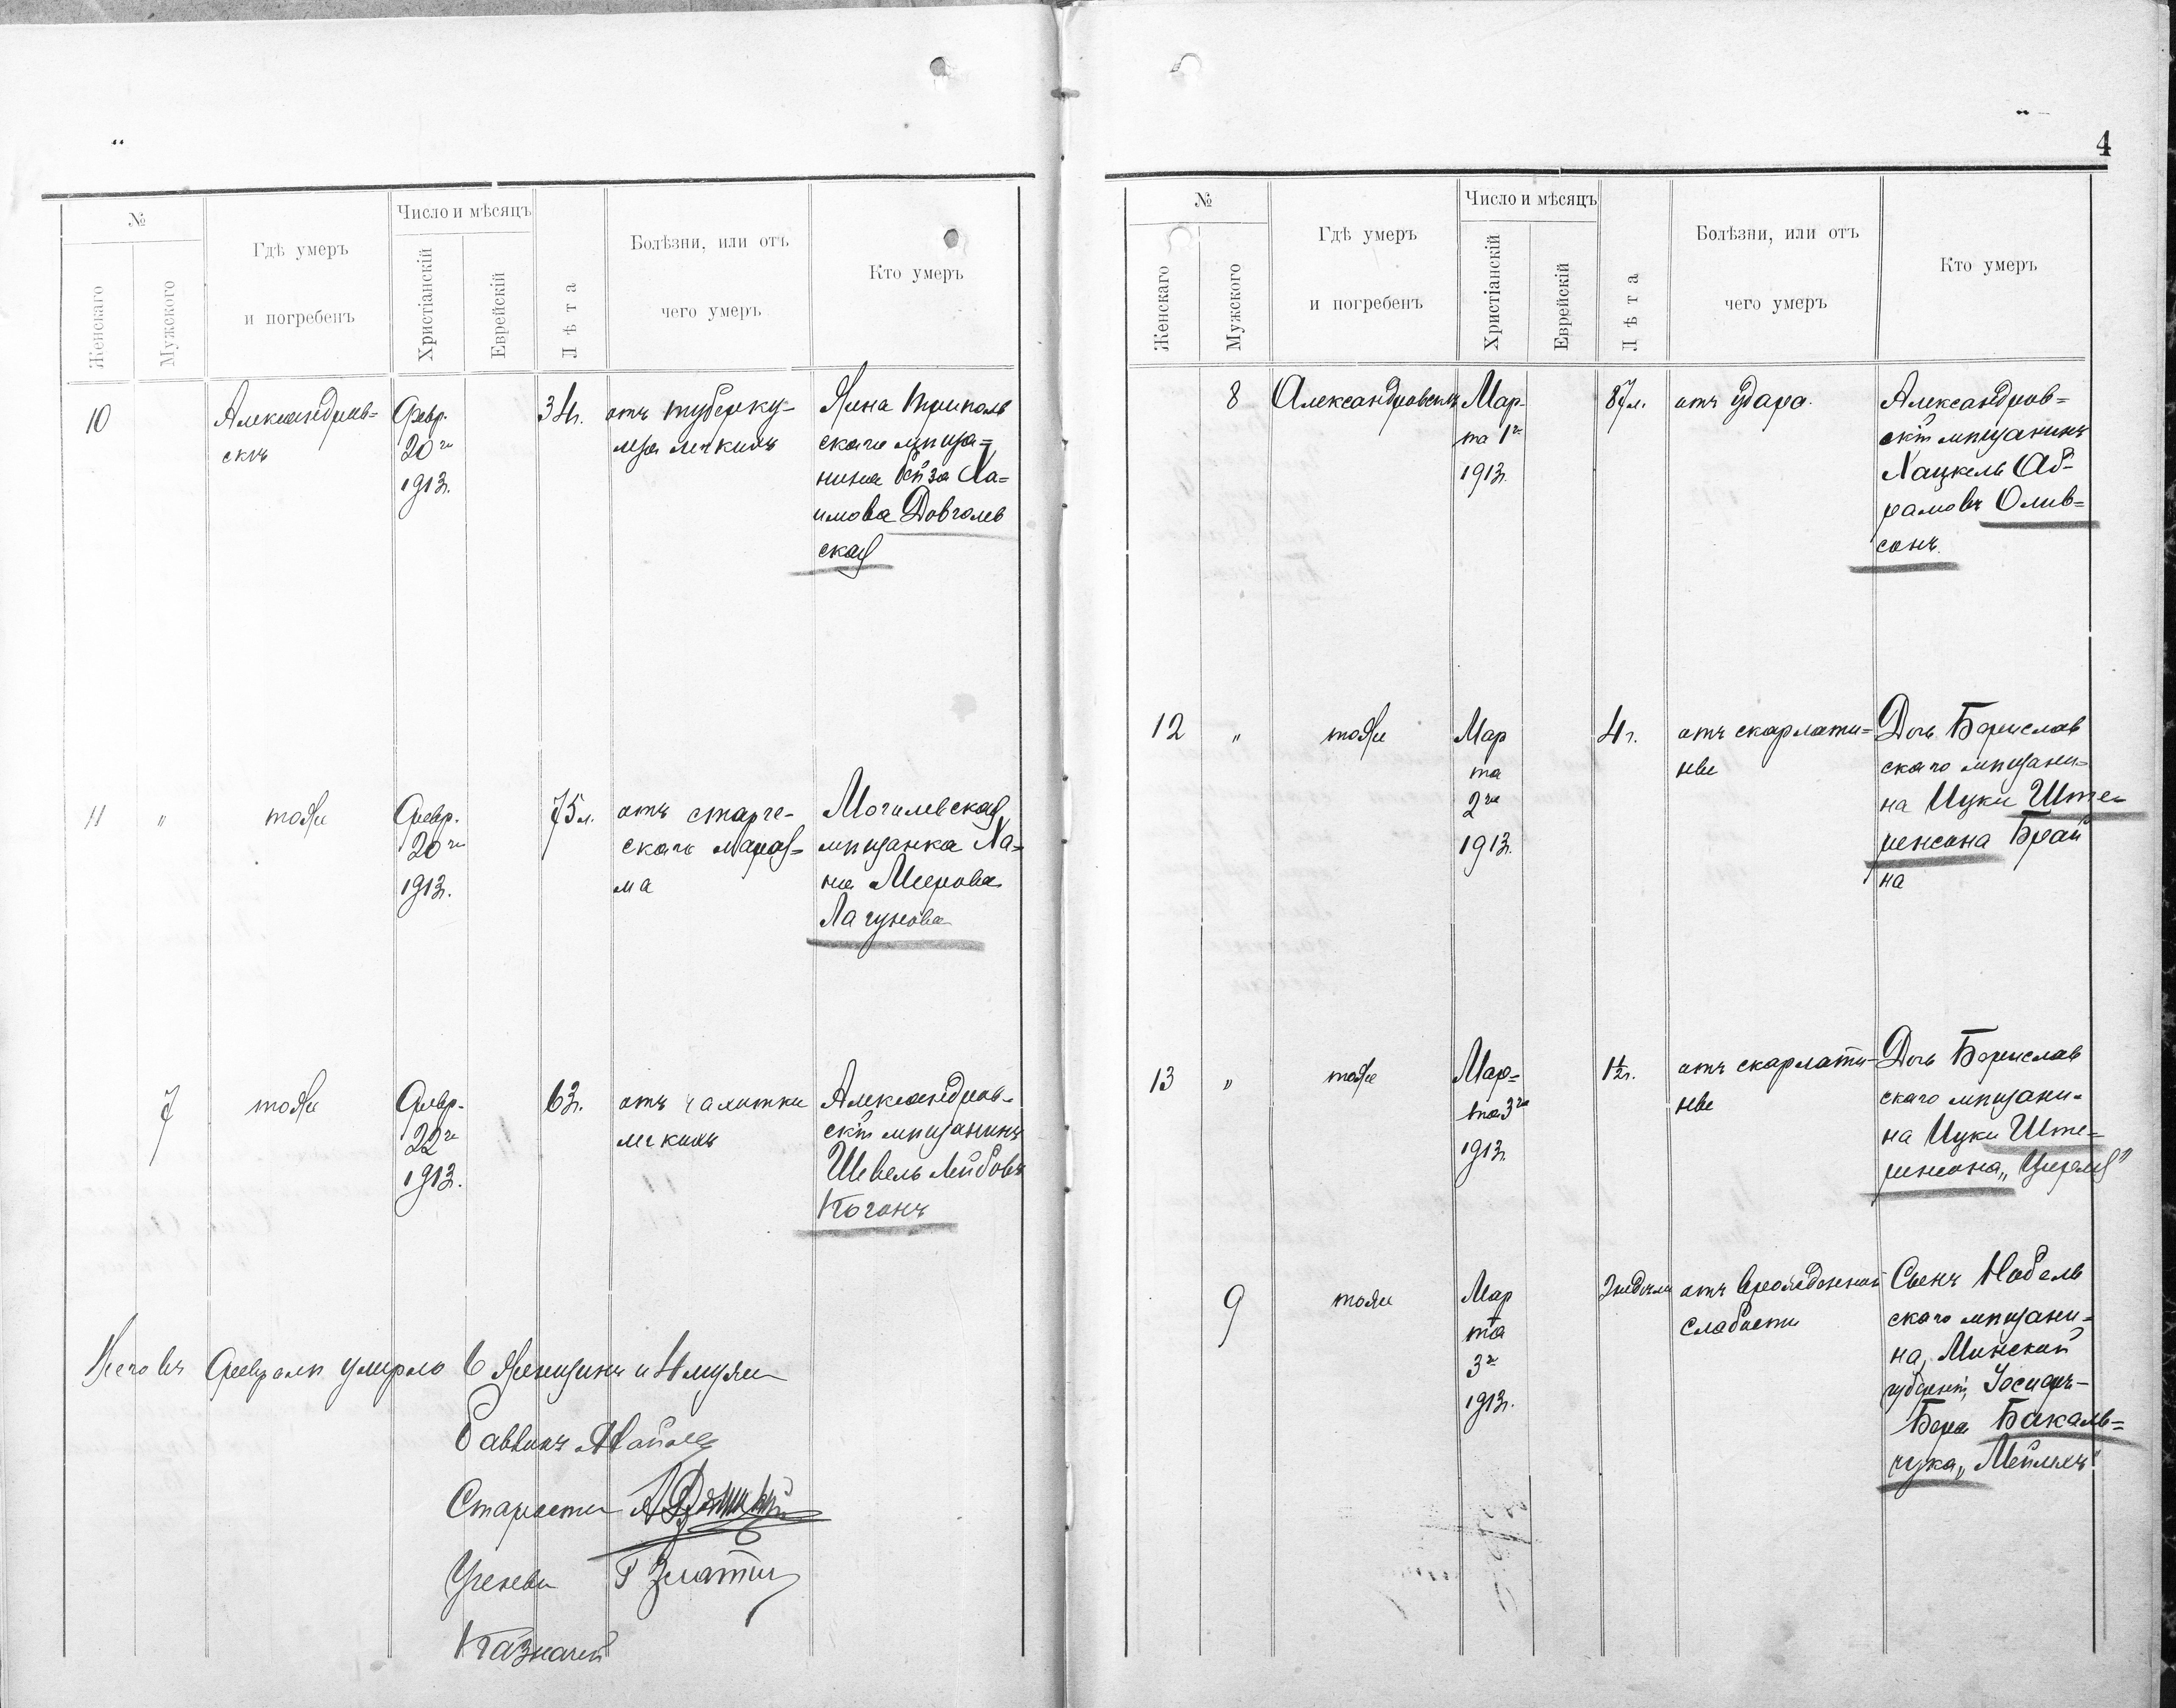 №
Женскаго
Мужского
Гдѣ умеръ
и погребенъ
Число и мѣсяцъ
Христіанскій
Еврейскій
Лѣта
Болѣзни, или отъ
чего умеръ
Кто умеръ
10
Александров=
скъ
Февр.
20го
1913г.
34г.
отъ туберку-
леза легкихъ
Жена Триполь
скаго мѣща=
нина Ейза Ха=
имова Довголев
ская
11 "
тоже
Февр.
20го
1913г.
75л.
отъ старче-
скаго мараз=
ма
Могилевская
мѣщанка Ха=
на Меерова
Лагунова
7
тоже
Февр.
22го
1913г.
63г.
отъ чахотки
легкихъ
Александров-
скій мѣщанинъ
Шевель Лейбовъ
Коганъ
Всего въ Февралѣ умерло 6 женщинъ и 4 мужч
Раввинъ
Староста
Ученый
Казначей
4
№
Женскаго
Мужского
Гдѣ умеръ
и погребенъ
Число и мѣсяцъ
Христіанскій
Еврейскій
Лѣта
Болѣзни, или отъ
чего умеръ
Кто умеръ
8
Александровскъ
Мар-
та 1го
1913г.
87л.
отъ удара.
Александров=
скій мѣщанинъ
Хацкель Аб-
рамовъ Олив=
сонъ.
12 "
тоже
Мар
та
2го
1913г.
4г.
отъ скарлати=
ны
Дочь Борислав
скаго мѣщани-
на ИцкиШте-
ренсона Брай
на
13 "
тоже
Мар=
та 3го
1913г.
1½г.
отъ скарлати-
ны
Дочь Борислав
скаго мѣщани-
на Ицки Ште=
ренсона „Ципля"
9
тоже
Мар
та
3го
1913г.
отъ врожденной
слабости
Сынъ Нобель
скаго мѣщани=
на, Минской
губерніи, Іосифъ-
Бера Бакаль=
чука „Мейлахъ"